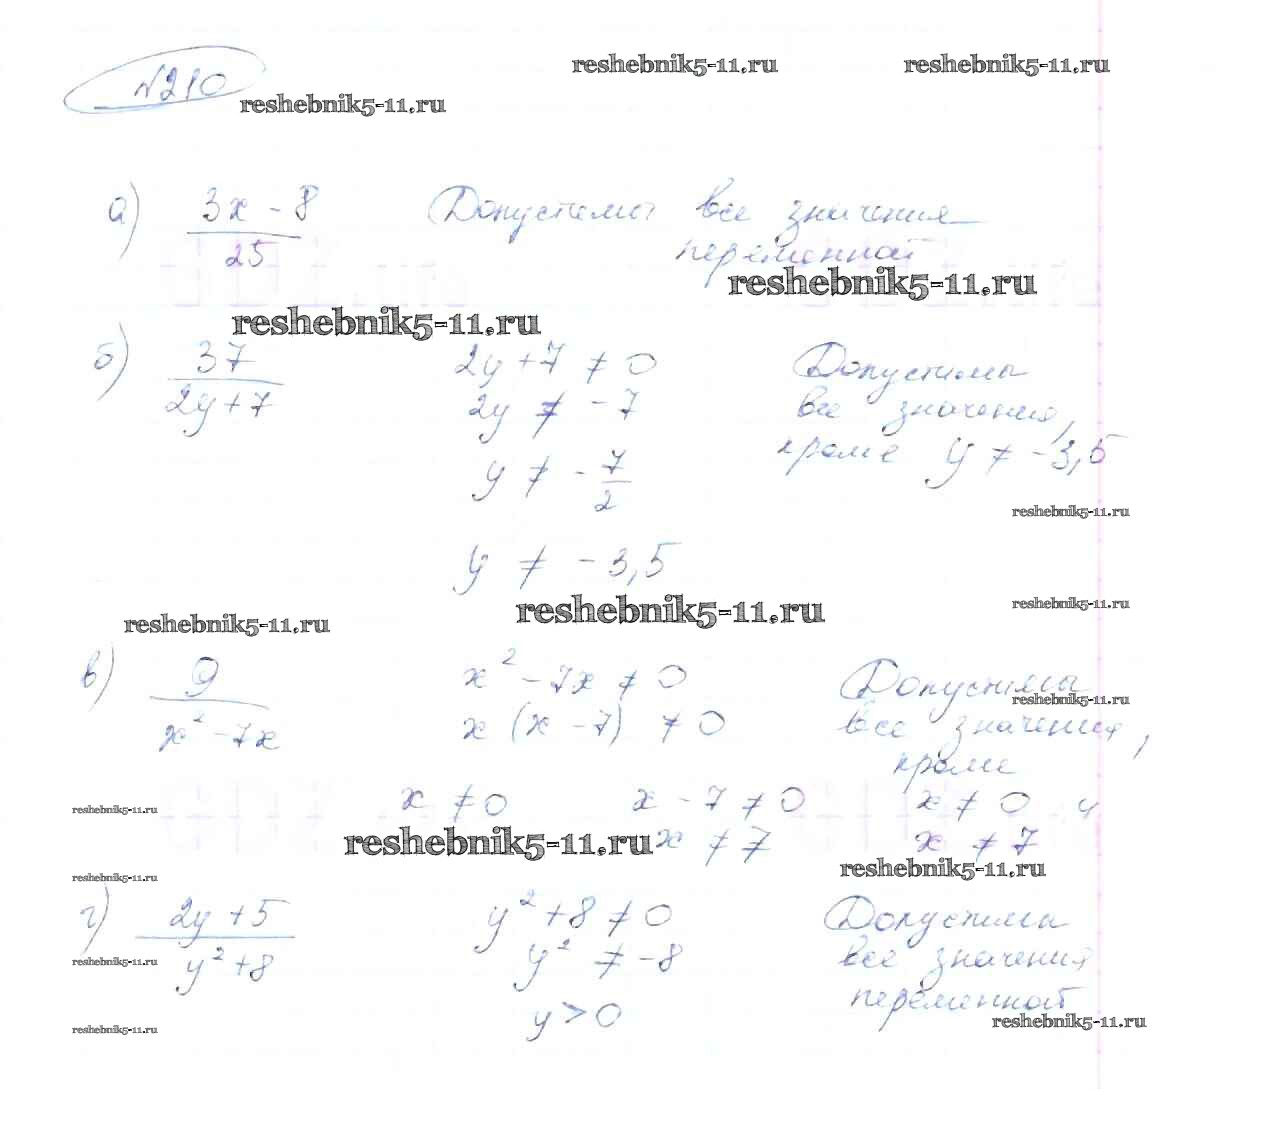 reshebnik5-11.ru reshebnik5-11.ru
№210
reshebnik5-11.ru
а) 3x - 8 Допустимы все значения
25 переменной
reshebnik5-11.ru
reshebnik5-11.ru
б) 37 2y + 7 ≠ 0 Допустимы
2y + 7 2y ≠ - 7 все значения,
y ≠ - 7/2 кроме y ≠ -3,5
reshebnik5-11.ru
y ≠ - 3,5
reshebnik5-11.ru
reshebnik5-11.ru
reshebnik5-11.ru
в) 9 x² - 7x ≠ 0 Допустимы
reshebnik5-11.ru
x² - 7x x (x - 7) ≠ 0 все значения,
кроме
x ≠ 0 x - 7 ≠ 0 x ≠ 0 и
reshebnik5-11.ru
x ≠ 7 x ≠ 7
reshebnik5-11.ru
reshebnik5-11.ru
reshebnik5-11.ru
г) 2y + 5 y² + 8 ≠ 0 Допустимы
y² + 8 y² ≠ - 8 все значения
reshebnik5-11.ru
переменной
y > 0
reshebnik5-11.ru
reshebnik5-11.ru